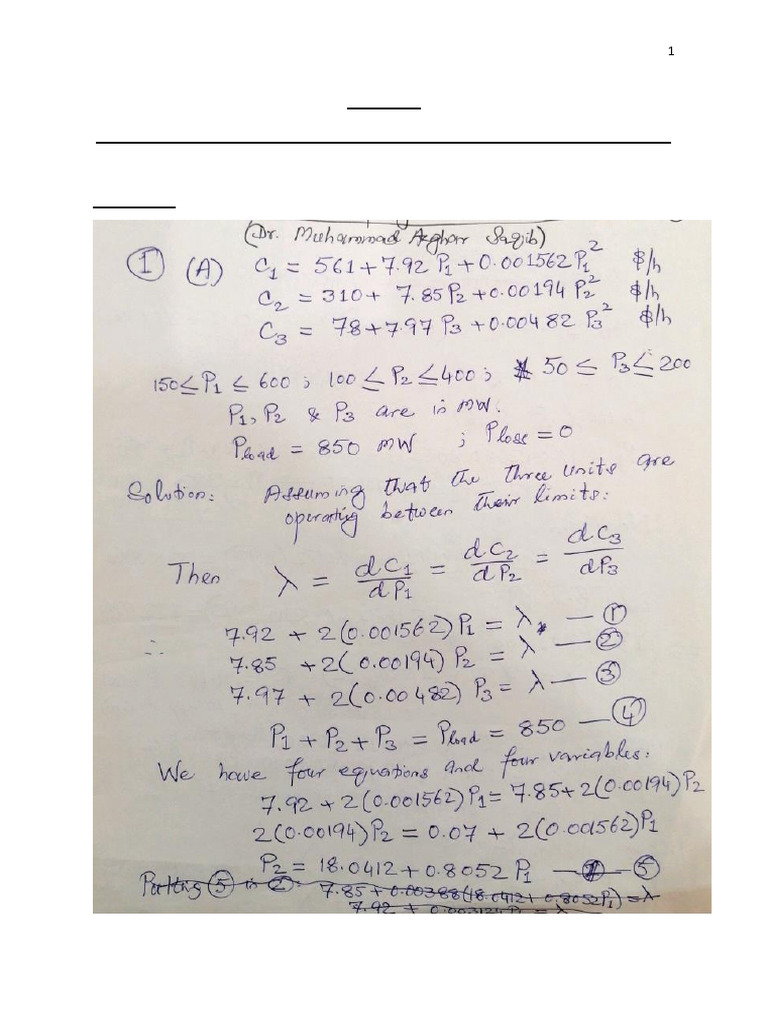 1
(Dr. Muhammad Asghar Saqib)
① (A) C₁ = 561 + 7.92 P₁ + 0.001562 P₁² $/h
C₂ = 310 + 7.85 P₂ + 0.00194 P₂² $/h
C₃ = 78 + 7.97 P₃ + 0.00482 P₃² $/h
150 ≤ P₁ ≤ 600 ; 100 ≤ P₂ ≤ 400 ; 50 ≤ P₃ ≤ 200
P₁, P₂ & P₃ are in MW.
Pload = 850 MW ; Plosс = 0
Solution: Assuming that the three units are
operating between their limits:
Then λ = dC₁/dP₁ = dC₂/dP₂ = dC₃/dP₃
∴ 7.92 + 2(0.001562) P₁ = λ — ①
7.85 + 2(0.00194) P₂ = λ — ②
7.97 + 2(0.00482) P₃ = λ — ③
P₁ + P₂ + P₃ = Pload = 850 — ④
We have four equations and four variables:
7.92 + 2(0.001562) P₁ = 7.85 + 2(0.00194) P₂
2(0.00194) P₂ = 0.07 + 2(0.001562) P₁
P₂ = 18.0412 + 0.8052 P₁ — ⑤
Putting ⑤ in ②: 7.85 + 0.00388(18.0412 + 0.8052 P₁) = λ
7.92 + 0.003124 P₁ = λ